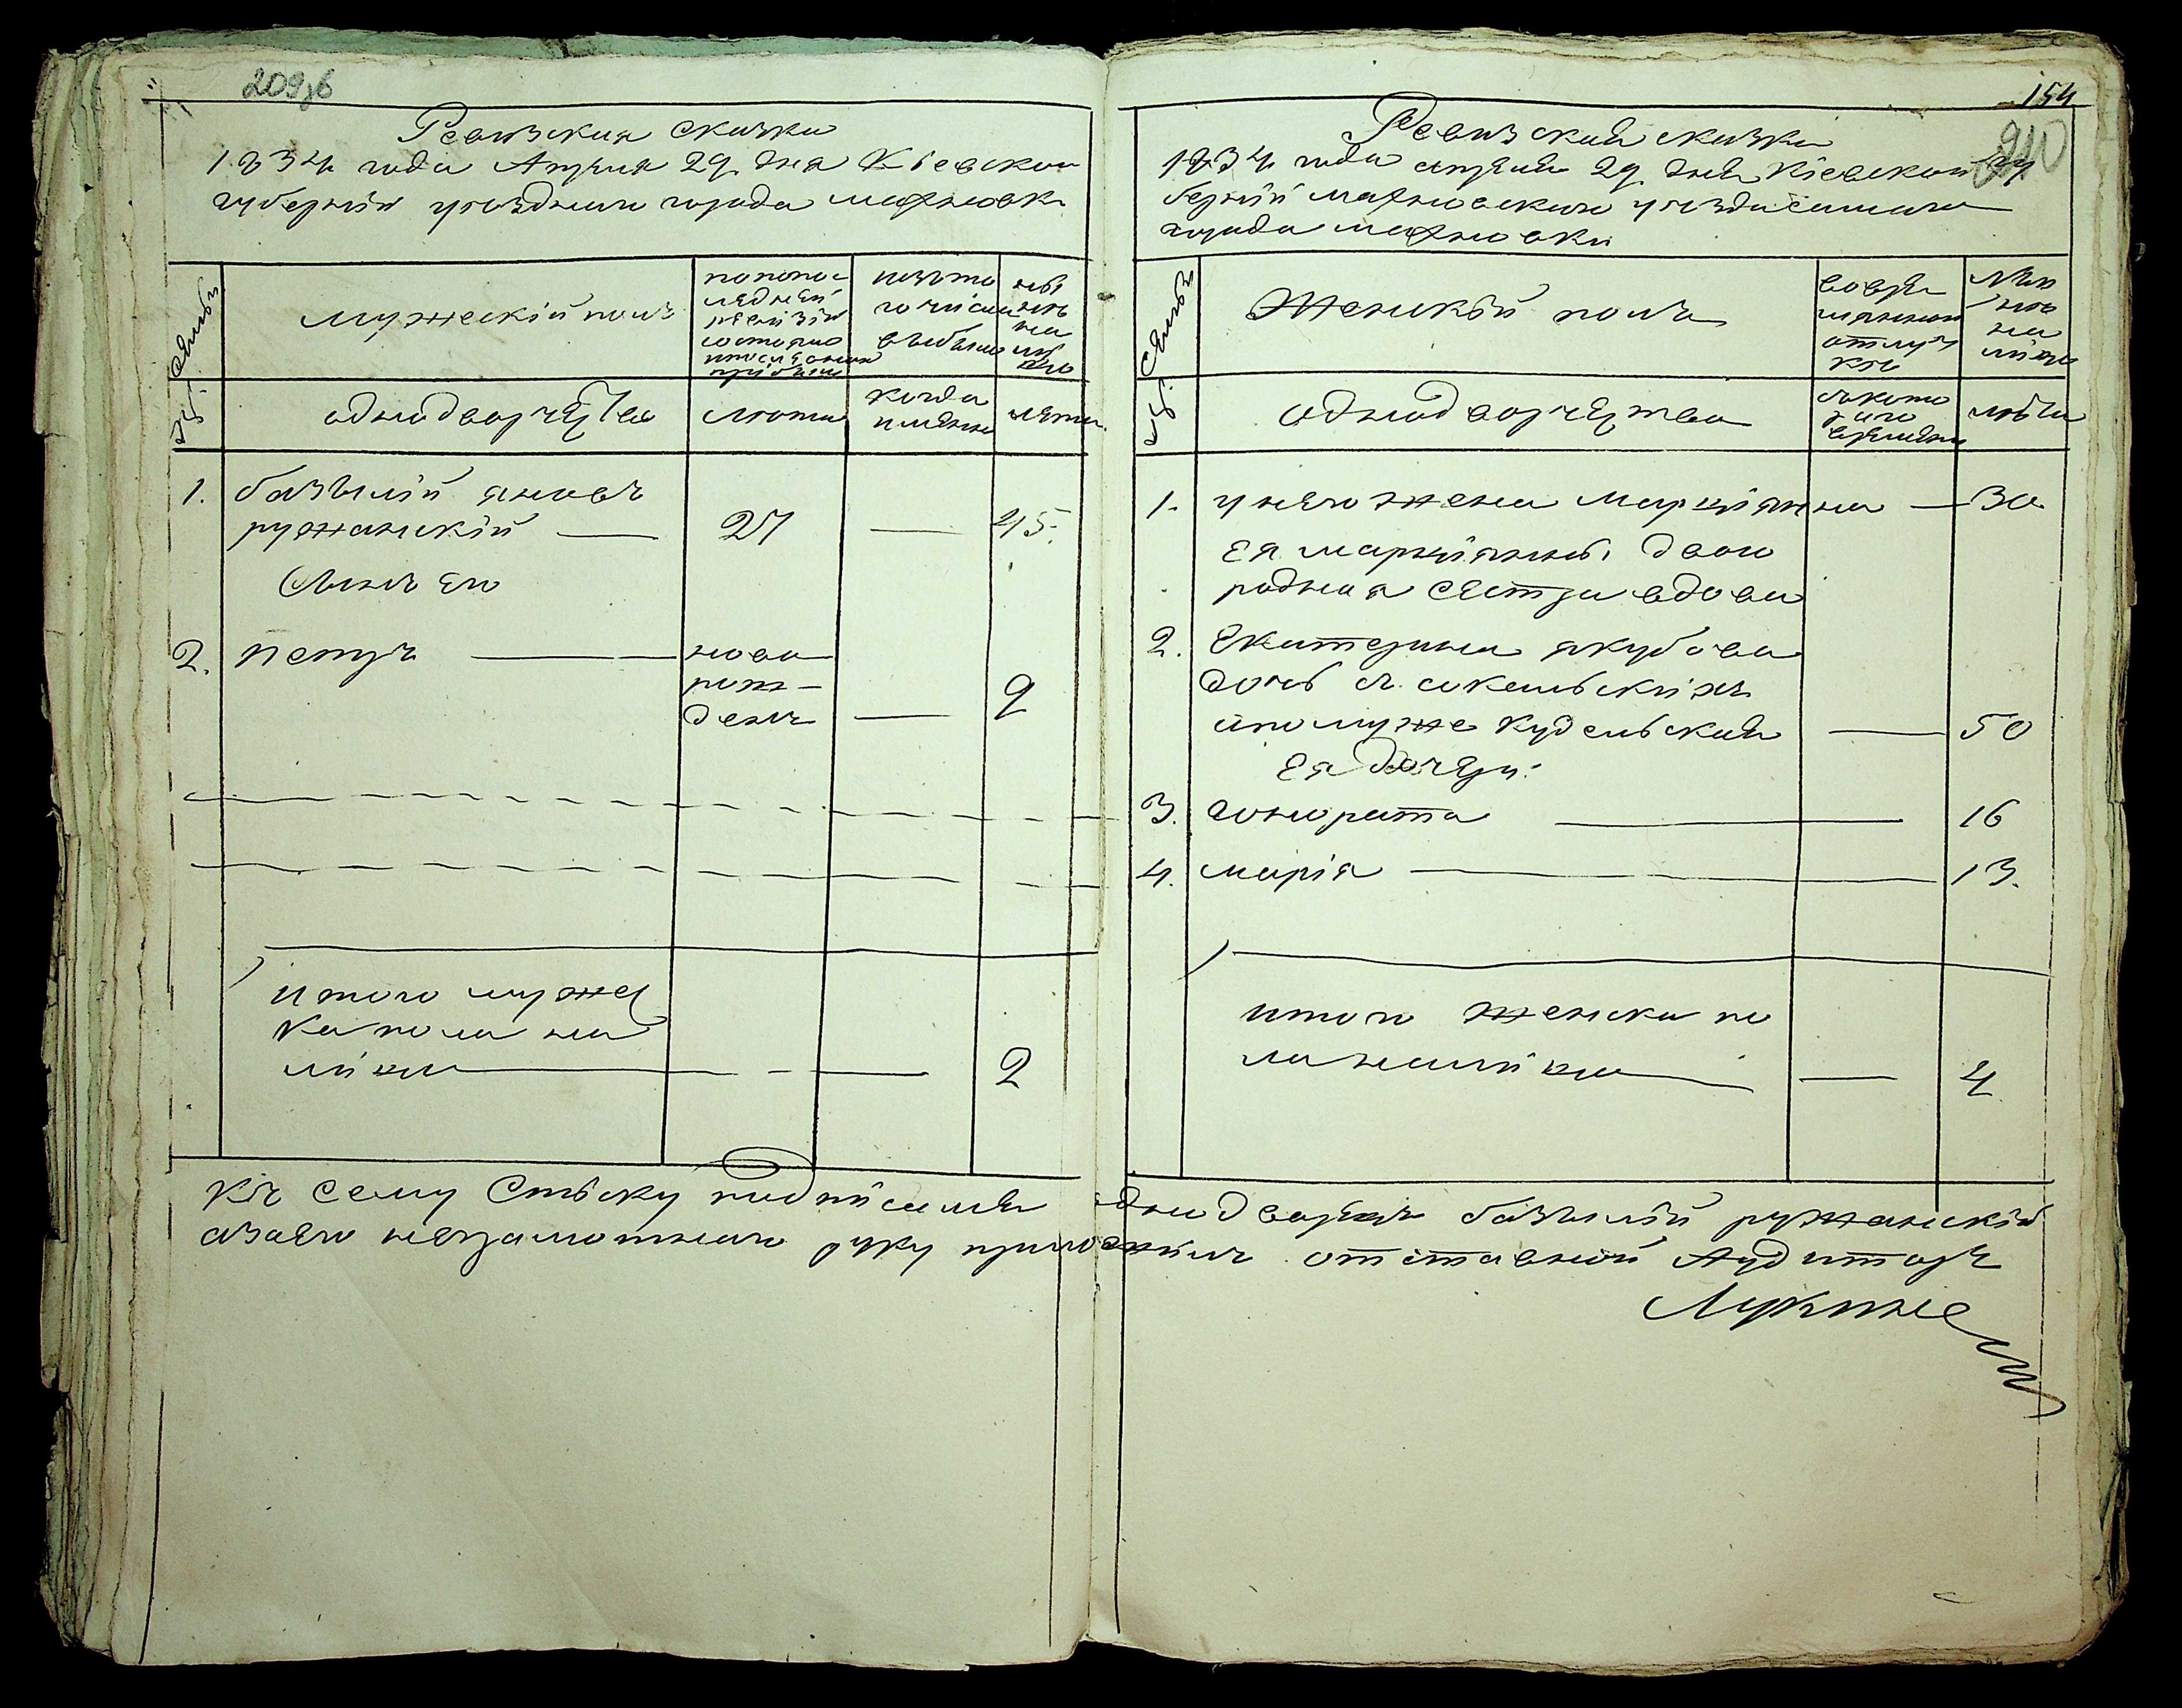 209зб
Ревизская сказка
1834 года Апреля 29. дня Кіевской
губерніи уезднаго города махновки
Семьи
мужескій полъ
по по по-
следней
ревизіи
состояло
и после оной
прибыло
изъ то
го числа
выбыло
ны
не
на
ли
цо
№.
однодворчества
лета
когда
имянно
лета.
1. базылій яновъ
ружанскій — 27 — 45.
Сынъ его
2. петръ — ново
рож-
денъ — 9
итого мужес
ка пола на
лицо — 2
154
210
Ревизская сказка
1834 года апреля 29. дня Кіевской гу
берніи махновского уезда самаго
города махновки
Семьи
Женскій пола
во вре-
мянной
отлуч
ке
ны
не
на
лицо
№.
однодворчества
съ кото
раго
времяни
лета
1. у него жена Марціянна — 30
Ея марціянны двою
родная сестра вдова
2. Екатерина якубова
дочь съ сокольскихъ
и по муже кудельская — 50
Ея дочери:
3. гонората — 16
4. марія — 13.
итого женска по
ла налицо — 4
Къ сему Списку подписался однодворецъ базылій ружанскій
а за его неграмотнаго руку приложилъ отставной Аудиторъ